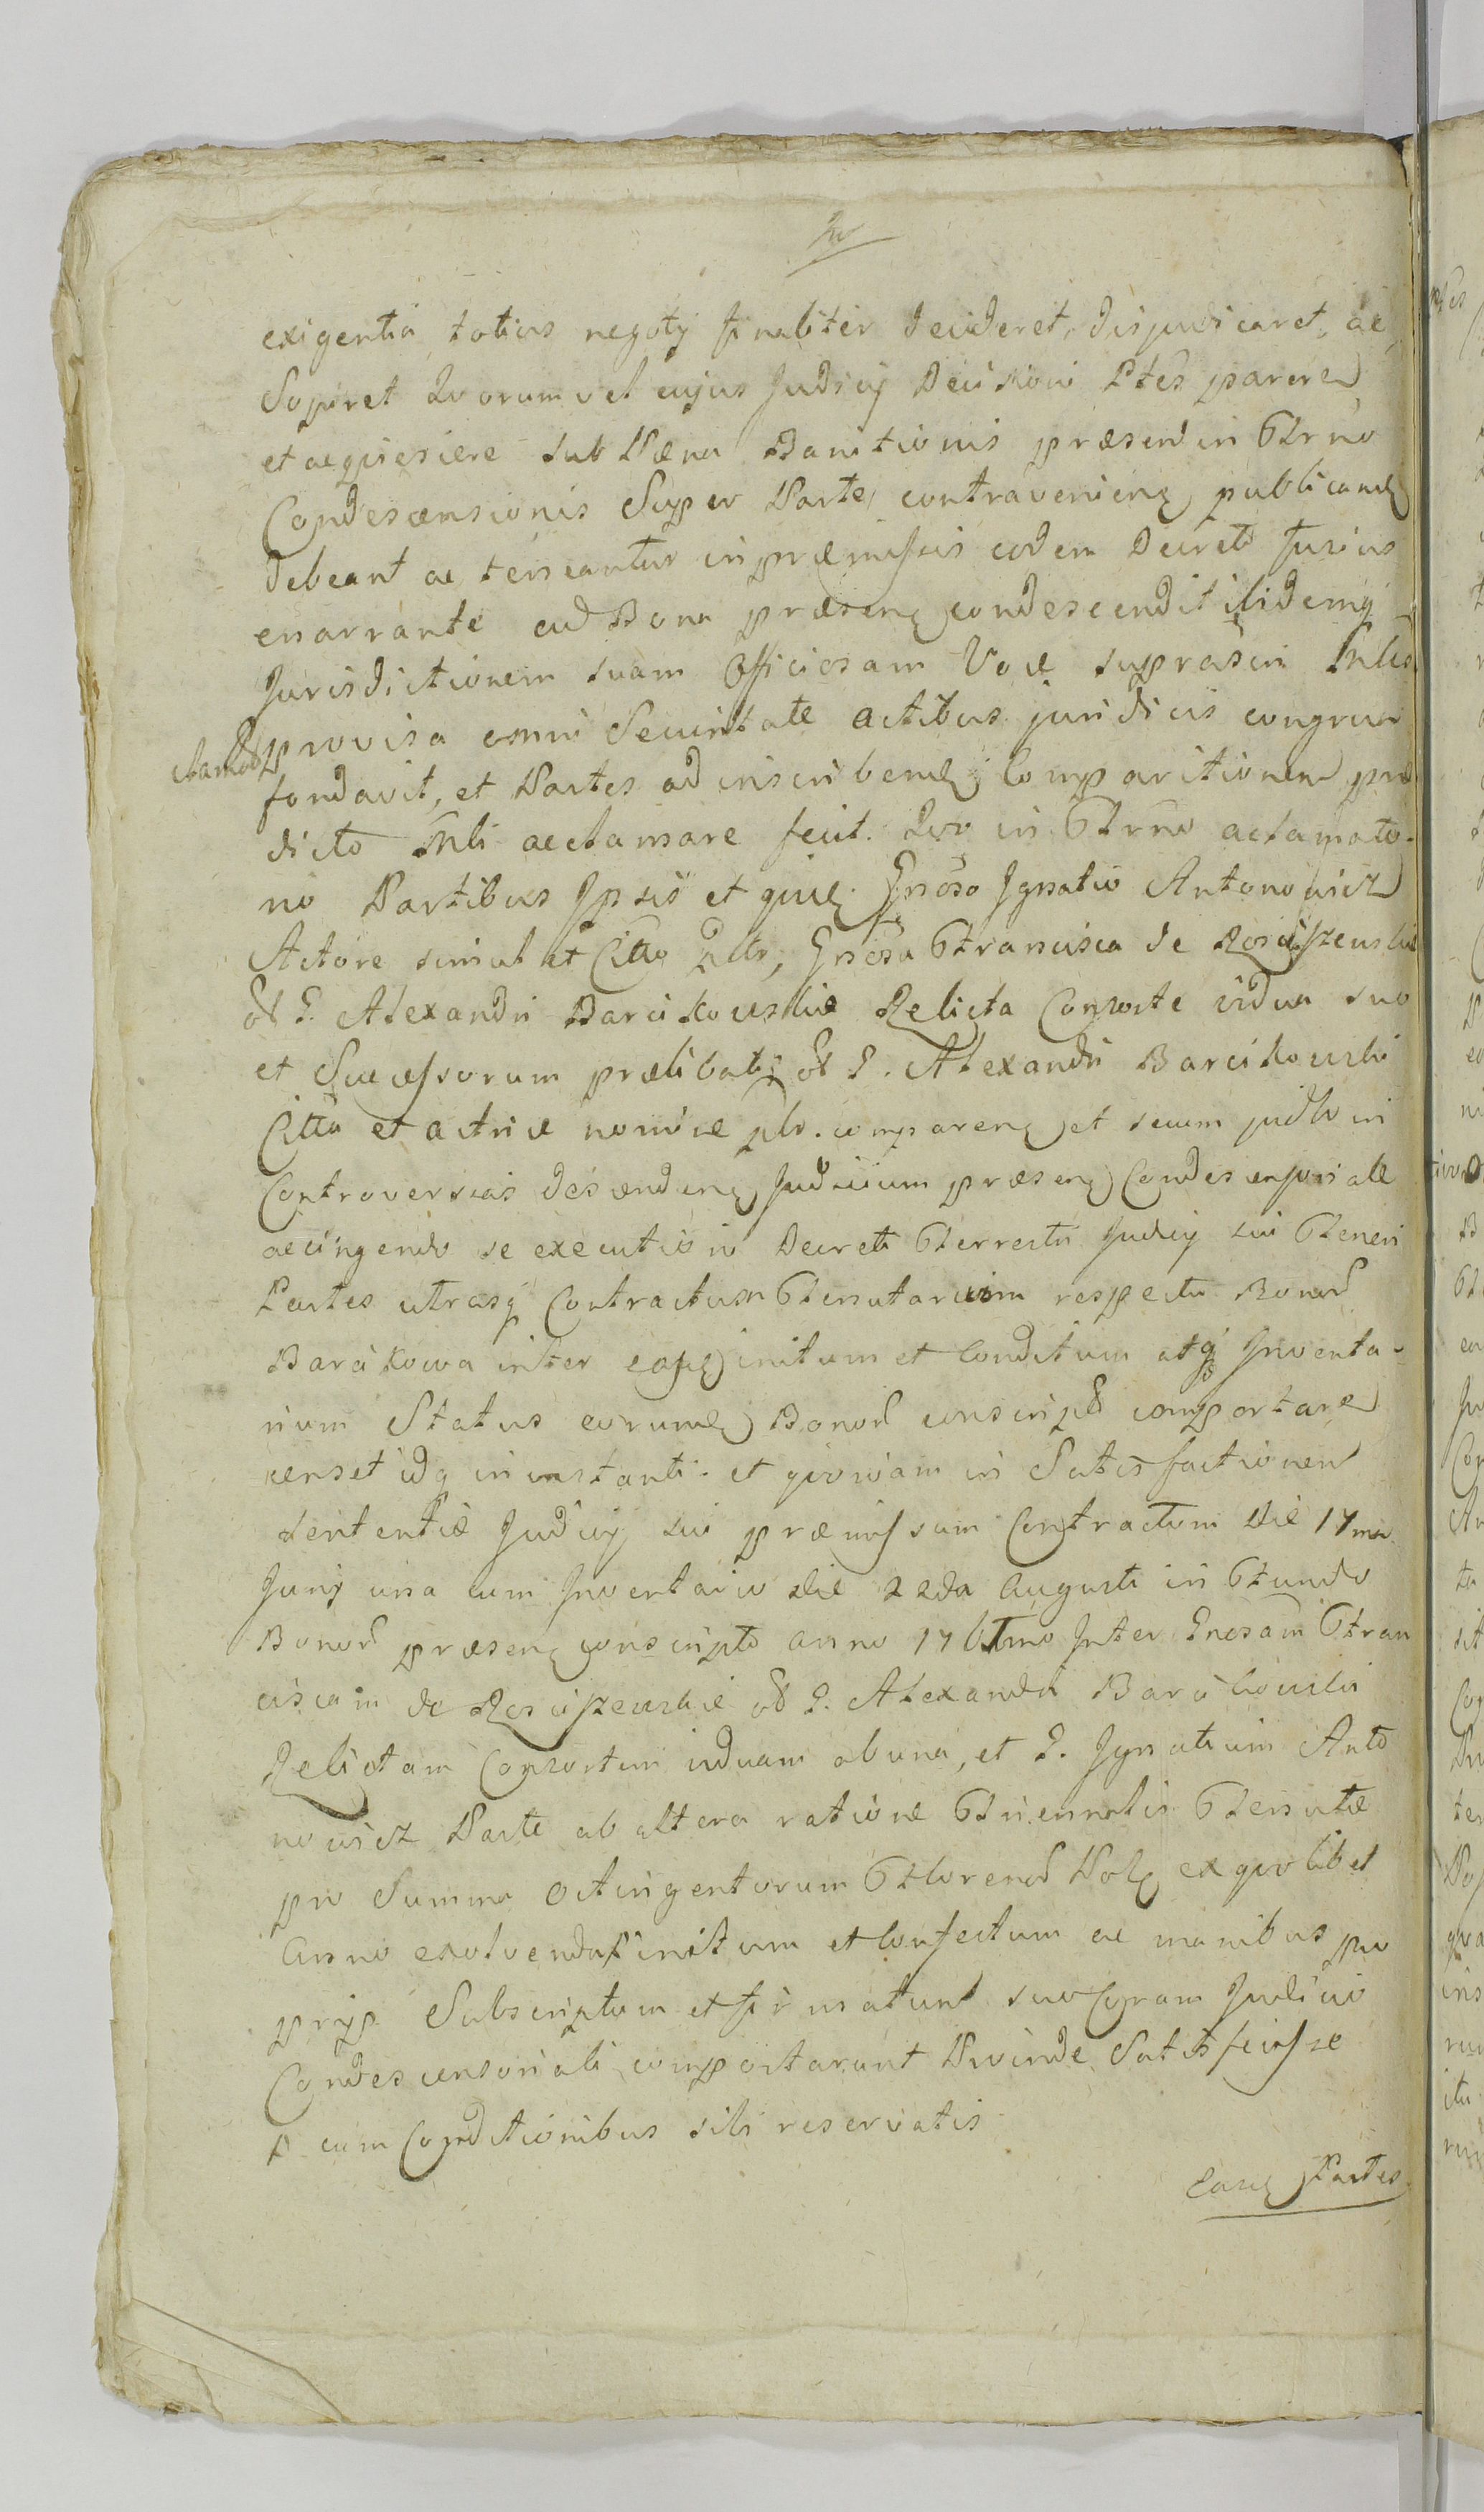 exigentia totius negotÿ finaliter decideret, disjudicaret, ac
Sopiret Quorumvel cujus Judicÿ Decisioni Ptes parere
et acquiescere sub Pæna Banitionis præsen in Ttrno
Condescensionis Super Parte contravenien publicand
debeant ac teneantur in præmissis eodem Decreto fusius
enarrante ad Bona præsen condescendit ibidemq
Jurisdictionem suam Officiosam Voce suprascri Mlis
provisa omni Securitate actibus juridicis congrua
fondavit, et Partes ad inscribend Comparitionem præ
dicto Mli acclamare fecit. Quo in Ttrno aclamatio
no Partibus Jpsis et quid Gnoso Jgnatio Antonowicz
Actore simul et Citto , Gnosa Francisca de Rosciszewskie
Alexandri Barcikowskie Relicta Consorte vidua suo
et Successorum prælibati Alexandri Barcikowski
Citta et actrice nomine comparen et secum judlr in
Controversias descenden Judicium præsen Condescensoriale
accingendo se executioni Decreti Terrestri Judicÿ sui Teneri
Partes utrasq Contractum Tenutarium respectu Bonor
Barcikowa inter easd initum et Conditum atq Jnventa-
rium Status eorumd Bonor conscript comportare
censet idq in instanti et quoniam in Satisfactionem
sententiæ Judicÿ sui præmissum Contractum Die 17ma
Junÿ una cum Jnventario Die 22da Augusti in Fundo
Bonor præsen conscripto anno Jnter Gnosam Fran
ciscam de Rosciszewskie Alexandri Barcikowski
Relictam Consortem viduam ab una, et G. Jgnatium Anto
nowicz Parte ab altera ratione Triennalis Tenutæ
pro Summa Octingentorum Florenor Pol ex quolibet
Anno exolvenda initum et Confectum ac manibus pro
prÿs Subscriptum et firmatum suo Coram Judicio
Condescensoriali comportarunt Proinde Satisfecisse
cum Conditionibus sibi reservatis
Eaed Partes